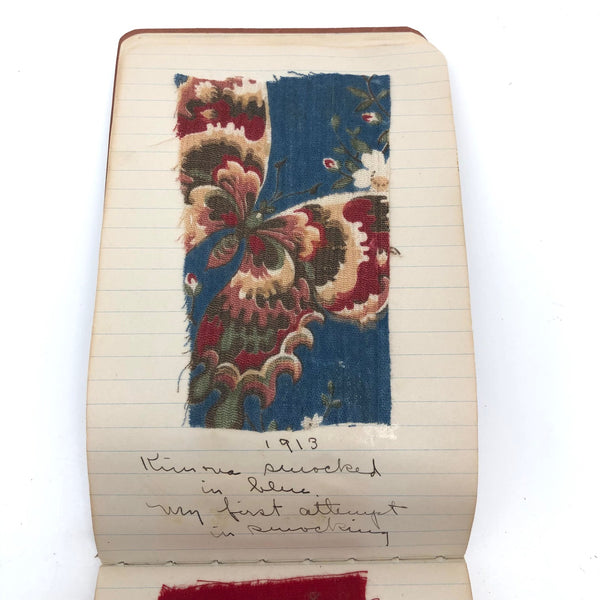 1913
Kimona smocked
in blue.
My first attempt
in smocking